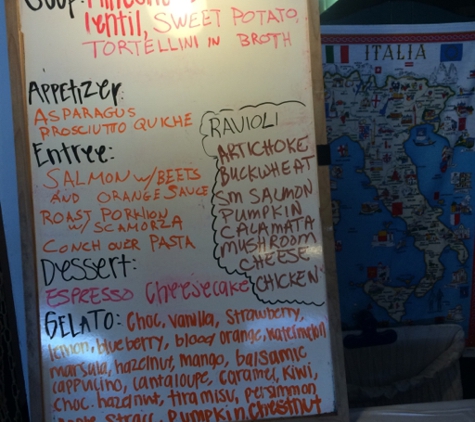 Soup:
lentil, SWEET POTATO,
TORTELLINI IN BROTH
Appetizer:
ASPARAGUS
PROSCIUTTO QUICHE
Entree:
SALMON w/ BEETS
AND ORANGE SAUCE
ROAST PORKLION
w/ SCAMORZA
CONCH OVER PASTA
Dessert:
ESPRESSO Cheesecake
RAVIOLI
ARTICHOKE
BUCKWHEAT
SM SALMON
PUMPKIN
CALAMATA
MUSHROOM
CHEESE
CHICKEN
GELATO: Choc, vanilla, strawberry,
lemon, blueberry, blood orange, watermelon
marsala, hazelnut, mango, balsamic
cappucino, cantaloupe, caramel, kiwi,
choc. hazelnut, tiramisu, persimmon
PUMPKIN, chestnut
ITALIA